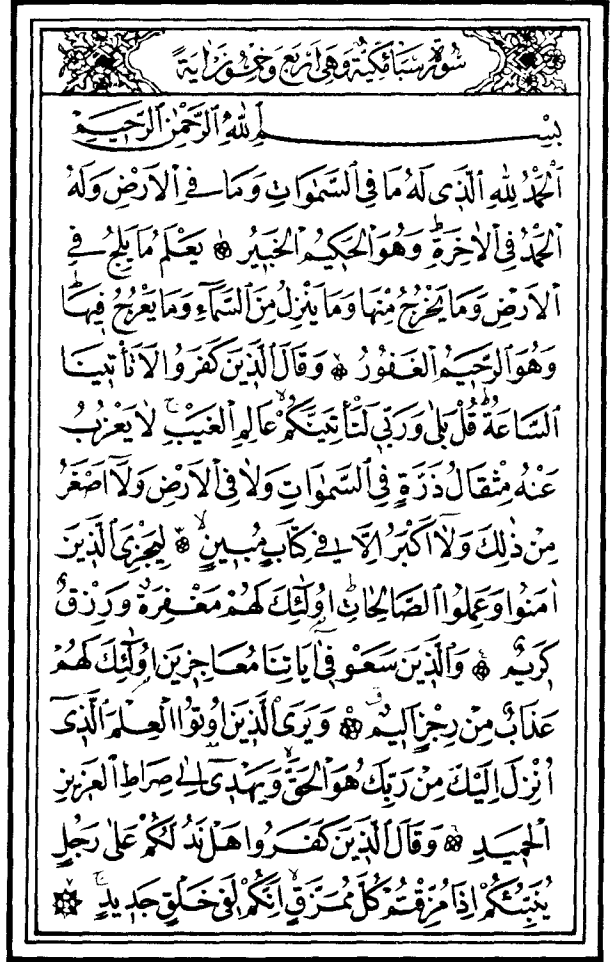 سُورَةُ سَبَأٍ مَكِّيَّةٌ وَهِيَ اَرْبَعٌ وَخَمْسُونَ اٰيَةً
بِسْمِ اللّٰهِ الرَّحْمٰنِ الرَّحِيمِ
اَلْحَمْدُ لِلّٰهِ الَّذِى لَهُ مَا فِى السَّمٰوَاتِ وَمَا فِى الْاَرْضِ وَلَهُ
الْحَمْدُ فِى الْاٰخِرَةِ وَهُوَ الْحَكِيمُ الْخَبِيرُ ۞ يَعْلَمُ مَا يَلِجُ فِى
الْاَرْضِ وَمَا يَخْرُجُ مِنْهَا وَمَا يَنْزِلُ مِنَ السَّمَٓاءِ وَمَا يَعْرُجُ فِيهَا
وَهُوَ الرَّحِيمُ الْغَفُورُ ۞ وَقَالَ الَّذِينَ كَفَرُوا لَا تَاْتِينَا
السَّاعَةُ قُلْ بَلٰى وَرَبِّى لَتَاْتِيَنَّكُمْ عَالِمِ الْغَيْبِ لَا يَعْزُبُ
عَنْهُ مِثْقَالُ ذَرَّةٍ فِى السَّمٰوَاتِ وَلَا فِى الْاَرْضِ وَلَٓا اَصْغَرُ
مِنْ ذٰلِكَ وَلَٓا اَكْبَرُ اِلَّا فِى كِتَابٍ مُبِينٍ ۞ لِيَجْزِىَ الَّذِينَ
اٰمَنُوا وَعَمِلُوا الصَّالِحَاتِ اُولٰٓئِكَ لَهُمْ مَغْفِرَةٌ وَرِزْقٌ
كَرِيمٌ ۞ وَالَّذِينَ سَعَوْ فِٓى اٰيَاتِنَا مُعَاجِزِينَ اُولٰٓئِكَ لَهُمْ
عَذَابٌ مِنْ رِجْزٍ اَلِيمٌ ۞ وَيَرَى الَّذِينَ اُوتُوا الْعِلْمَ الَّذِٓى
اُنْزِلَ اِلَيْكَ مِنْ رَبِّكَ هُوَ الْحَقَّ وَيَهْدِٓى اِلٰى صِرَاطِ الْعَزِيزِ
الْحَمِيدِ ۞ وَقَالَ الَّذِينَ كَفَرُوا هَلْ نَدُلُّكُمْ عَلٰى رَجُلٍ
يُنَبِّئُكُمْ اِذَا مُزِّقْتُمْ كُلَّ مُمَزَّقٍ اِنَّكُمْ لَفِى خَلْقٍ جَدِيدٍ ۞